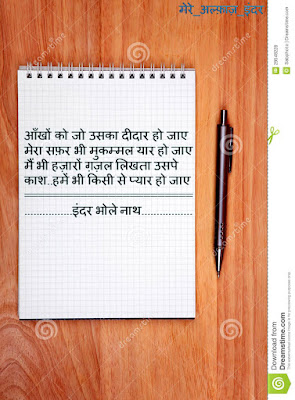 मेरे_अल्फाज़_इंदर
dreamstime
आँखों को जो उसका दीदार हो जाए
मेरा सफ़र भी मुकम्मल यार हो जाए
मैं भी हज़ारों गज़ल लिखता उसपे
काश..हमें भी किसी से प्यार हो जाए
इंदर भोले नाथ
Download from
Dreamstime.com